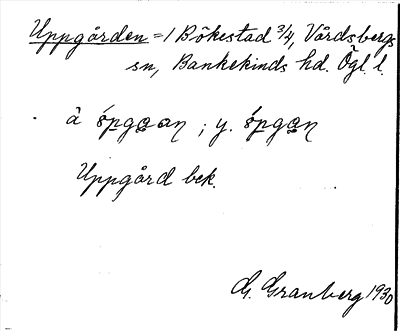 Uppgården = 1 Bökestad 3/4, Vårdsbergs
sn, Bankekinds hd. Ögl. l.
å ǿpgaan ; y. ǿpgan
Uppgård bek.
G. Granberg 1930